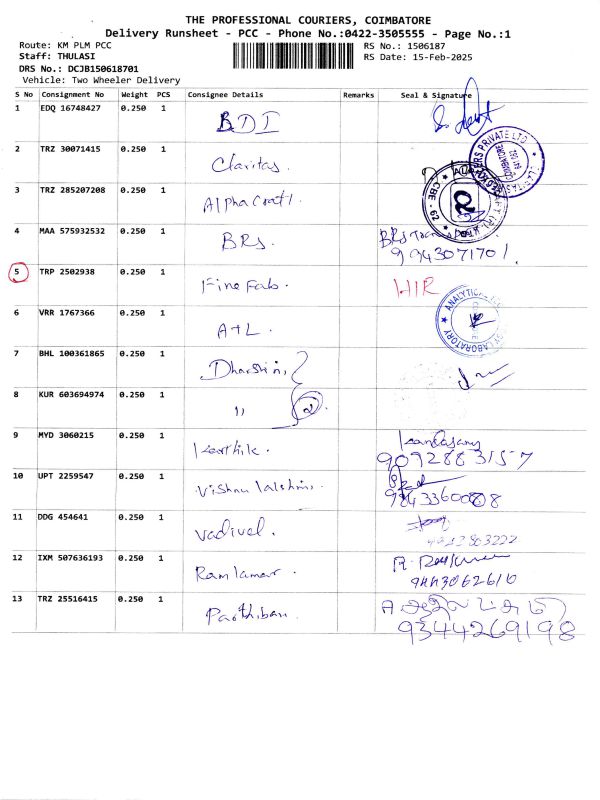 THE PROFESSIONAL COURIERS, COIMBATORE
Delivery Runsheet - PCC - Phone No.:0422-3505555 - Page No.:1
Route: KM PLM PCC
RS No.: 1506187
Staff: THULASI
RS Date: 15-Feb-2025
DRS No.: DCJB150618701
Vehicle: Two Wheeler Delivery
S No Consignment No Weight PCS Consignee Details Remarks Seal & Signature
1 EDQ 16748427 0.250 1 BDI
2 TRZ 30071415 0.250 1 Claritas.
3 TRZ 285207208 0.250 1 AlphaCraft.
CBE. 62
4 MAA 575932532 0.250 1 BRS. BRS
9943071701.
5 TRP 2502938 0.250 1 Fine Fab. HIR
6 VRR 1767366 0.250 1 A+L. ANALYTICAL LABORATORY
7 BHL 100361865 0.250 1 Dharshini,
8 KUR 603694974 0.250 1 " 2
9 MYD 3060215 0.250 1 Karthik. Kandasamy
9092883157
10 UPT 2259547 0.250 1 Vishnu lakshmi.
9843360088
11 DDG 454641 0.250 1 Vadivel.
12 IXM 507636193 0.250 1 Ramkumar.
9443062610
13 TRZ 25516415 0.250 1 Parthiban.
9344269198